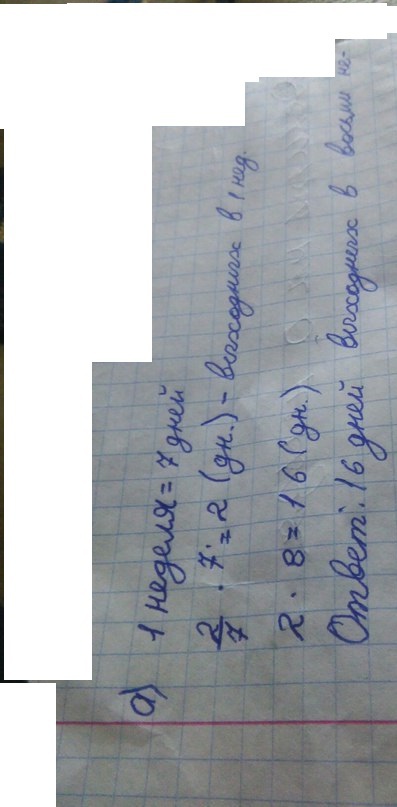 а) 1 неделя = 7 дней
2/7 · 7 = 2 (дн.) - выходных в 1 нед.
2 · 8 = 16 (дн.)
Ответ: 16 дней выходных в восьми не-